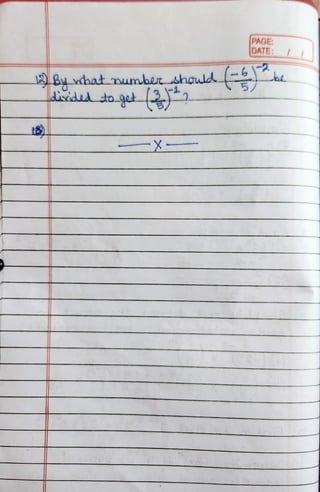 PAGE:
DATE: / /
12) By what number should (-6/5)^-2 be
divided to get (3/5)^-1 ?
13)
—— X ——